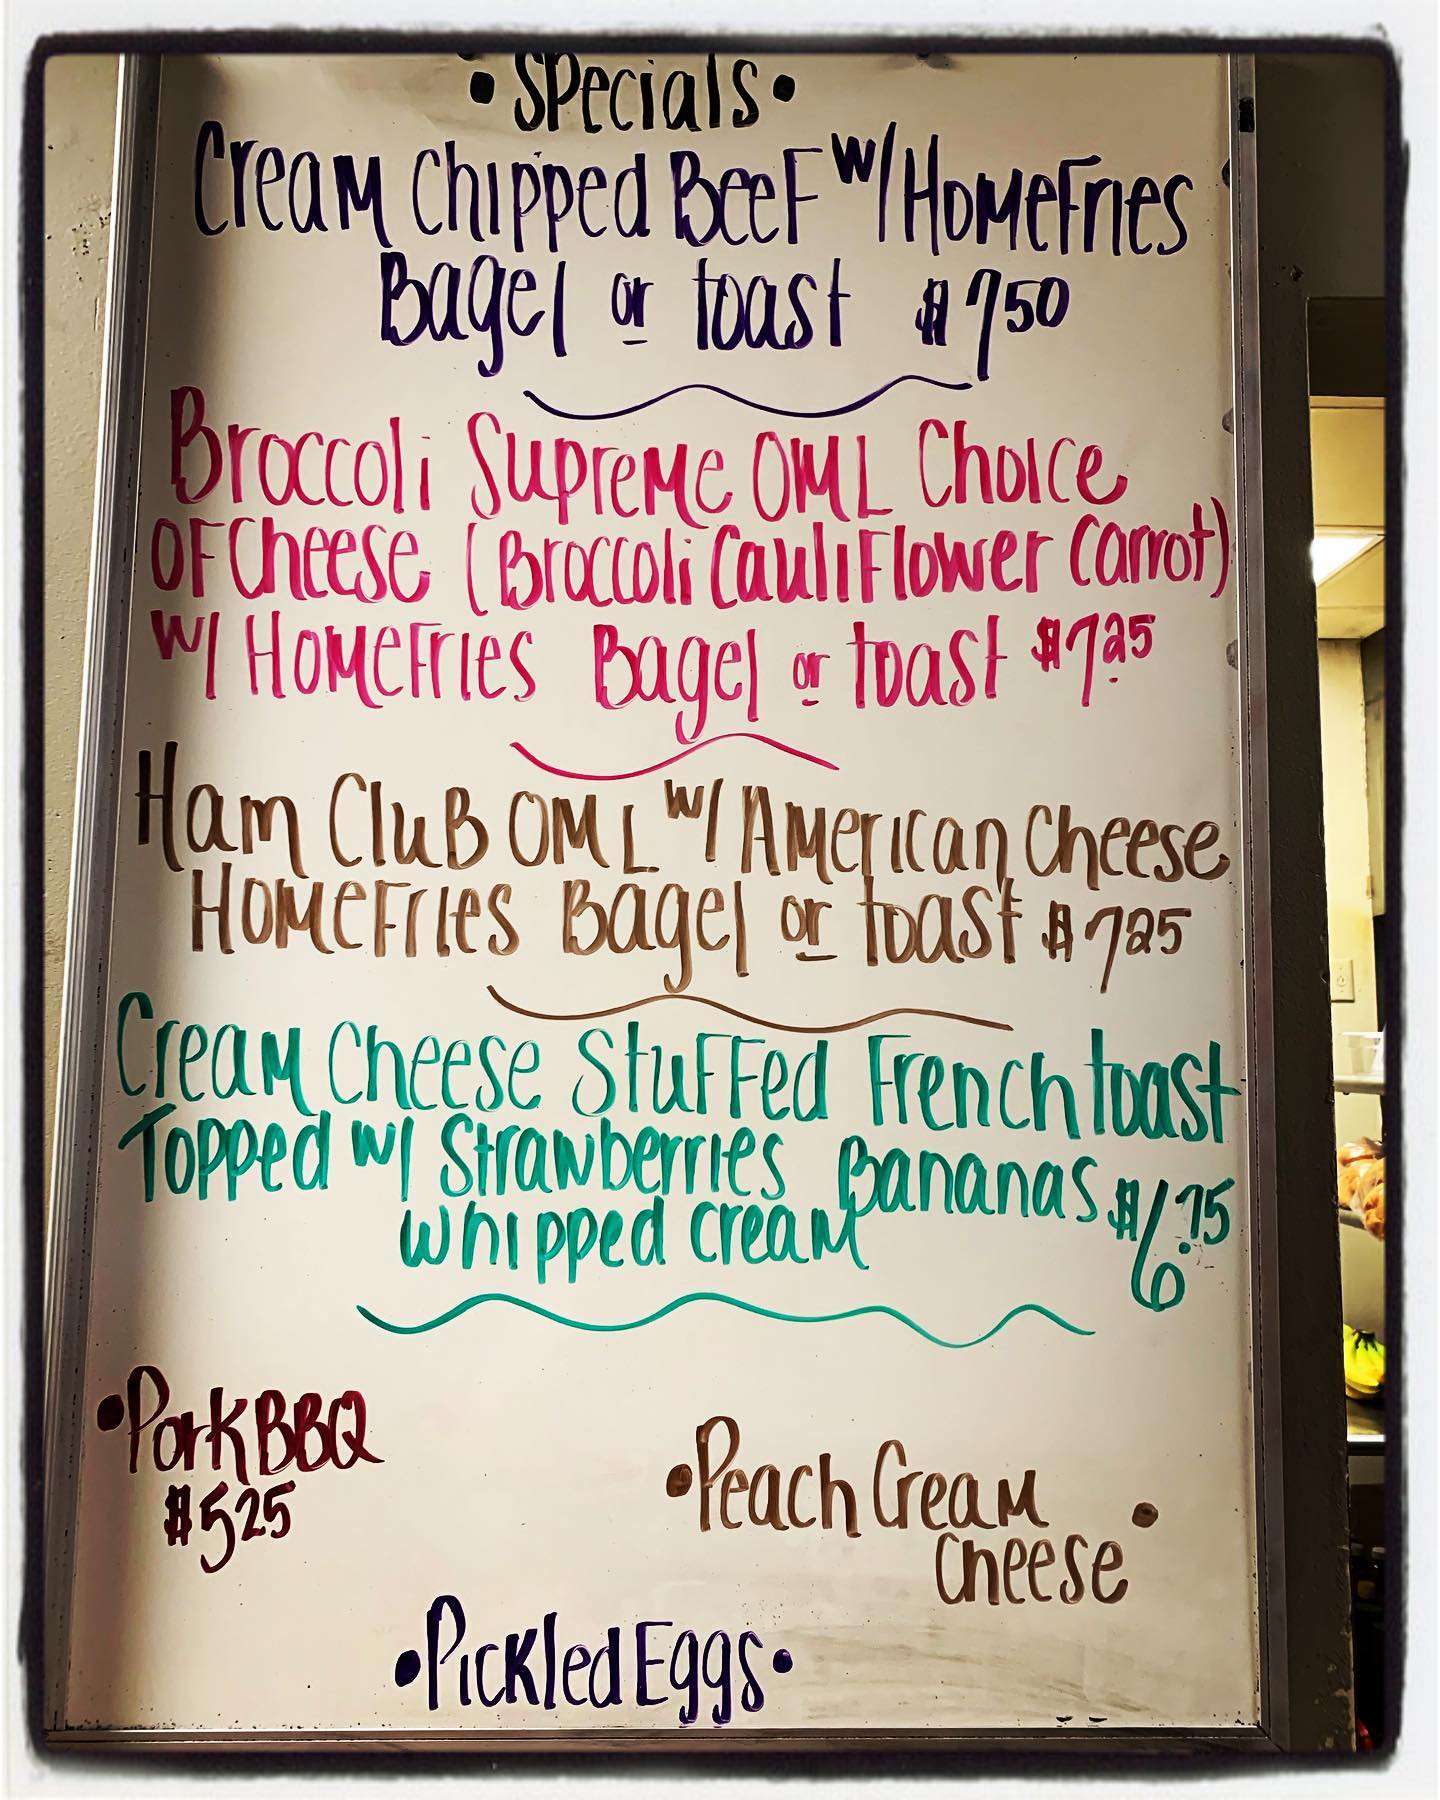 • Specials •
Cream Chipped Beef w/ Homefries
Bagel or toast $7.50
Broccoli Supreme OML Choice
OF Cheese (Broccoli Cauliflower Carrot)
w/ Homefries Bagel or toast $7.25
Ham Club OML w/ American Cheese
Homefries Bagel or toast $7.25
Cream Cheese Stuffed French toast
Topped w/ Strawberries Bananas $6.75
whipped cream
• Pork BBQ
$5.25
• Peach Cream
Cheese •
• Pickled Eggs •